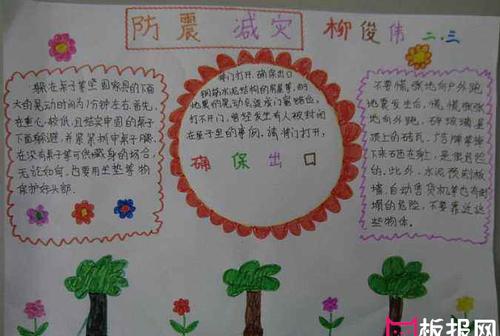 防震 减灾 柳俊伟 二.三
躲在桌子等坚固家具的下面
大的晃动时间约1分钟左右,首先,
在重心较低,且结实牢固的桌子
下面躲避,并紧紧抓牢桌子腿。
在没有桌子等可供藏身的场合,
无论如何,也要用坐垫等物
保护好头部。
将门打开,确保出口
钢筋水泥结构的房屋等,由于
地震的晃动会造成门窗错位,
打不开门,曾经发生有人被封闭
在屋子里的事例。请将门打开,
确保出口
不要慌,张地向户外跑
地震发生后,慌慌张张
地向外跑,碎玻璃屋
顶上的砖瓦、广告牌等掉
下来砸在身上,是很危险
的。此外,水泥预制板
墙、自动售货机等也有倒
塌的危险,不要靠近这
些物体。
板报网